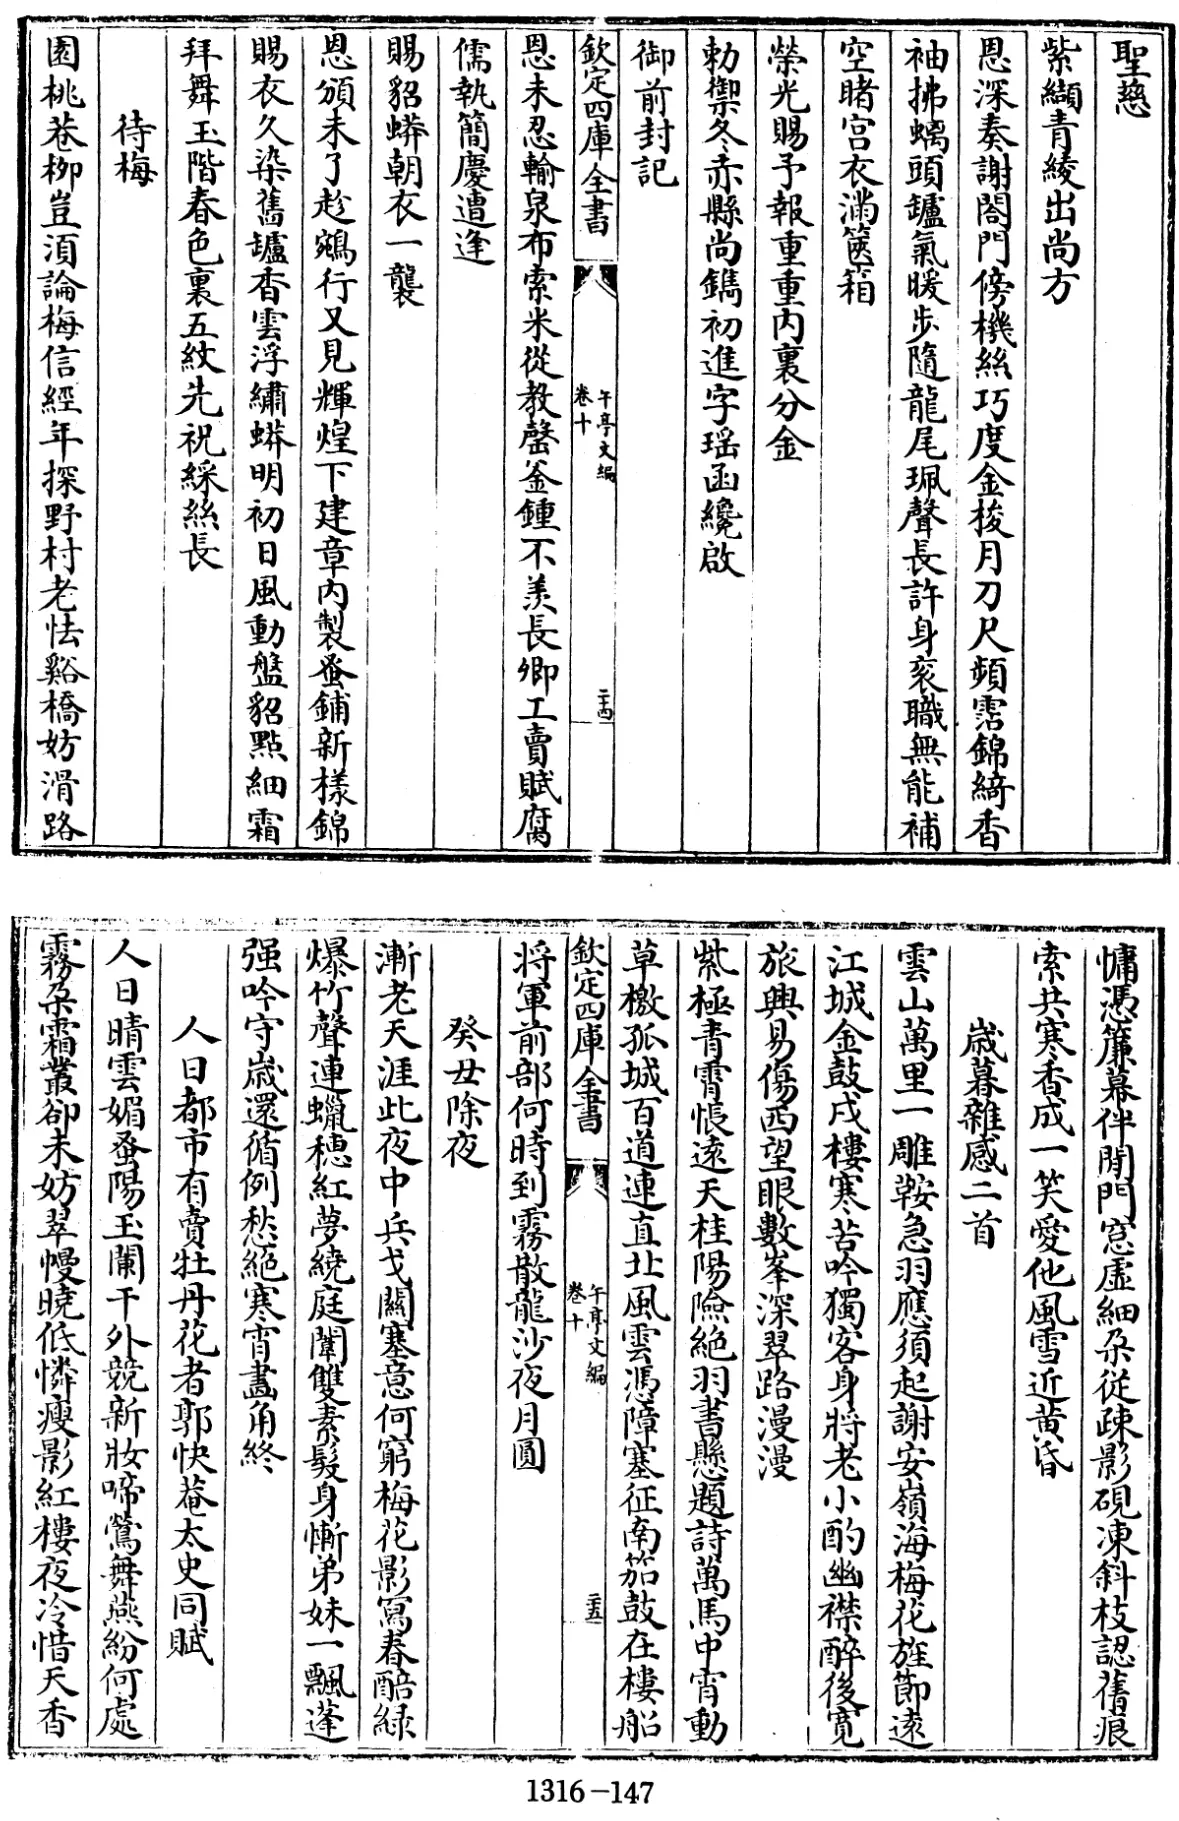 聖慈
紫纈青綾出尚方
恩深奏謝閤門傍機絲巧度金梭月刀尺頻霑錦綺香
袖拂螭頭鑪氣暖步隨龍尾珮聲長許身衮職無能補
空睹宮衣滿篋箱
榮光賜予報重重内裏分金
勅禦冬赤縣尚鐫初進字瑶函纔啟
御前封記
欽定四庫全書
午亭文編
卷十
二十四
恩未忍輸泉布索米從教罄釜鍾不羡長卿工賣賦腐
儒執簡慶遭逢
賜貂蟒朝衣一襲
恩頒未了趁鵷行又見輝煌下建章内製蚤鋪新様錦
賜衣久染舊罏香雲浮繡蟒明初日風動盤貂點細霜
拜舞玉階春色裏五紋先祝綵絲長
待梅
園桃巷栁豈湏論梅信經年探野村老怯谿橋妨滑路
慵憑簾幕伴閒門窓虚細朶從疎影硯凍斜枝認舊痕
索共寒香成一笑愛他風雪近黄昏
嵗暮雜感二首
雲山萬里一雕鞍急羽應須起謝安嶺海梅花旌節逺
江城金鼓戍樓寒苦吟獨客身將老小酌幽襟醉後寛
旅興易傷西望眼數峯深翠路漫漫
紫極青霄悵逺天桂陽險絶羽書懸題詩萬馬中宵動
草檄孤城百道連直北風雲憑障塞征南笳鼓在樓船
欽定四庫全書
午亭文編
卷十
二十五
将軍前部何時到霧散龍沙夜月圓
癸丑除夜
漸老天涯此夜中兵戈關塞意何窮梅花影寫春醅緑
爆竹聲連蠟穗紅夢繞庭闈雙素髮身慚弟妹一飄蓬
强吟守嵗還循例愁絶寒宵畫角終
人日都市有賣牡丹花者郭快菴太史同賦
人日晴雲媚蚤陽玉闌干外競新妝啼鶯舞燕紛何處
霧朶霜叢卻未妨翠幔曉低憐瘦影紅樓夜冷惜天香
1316-147